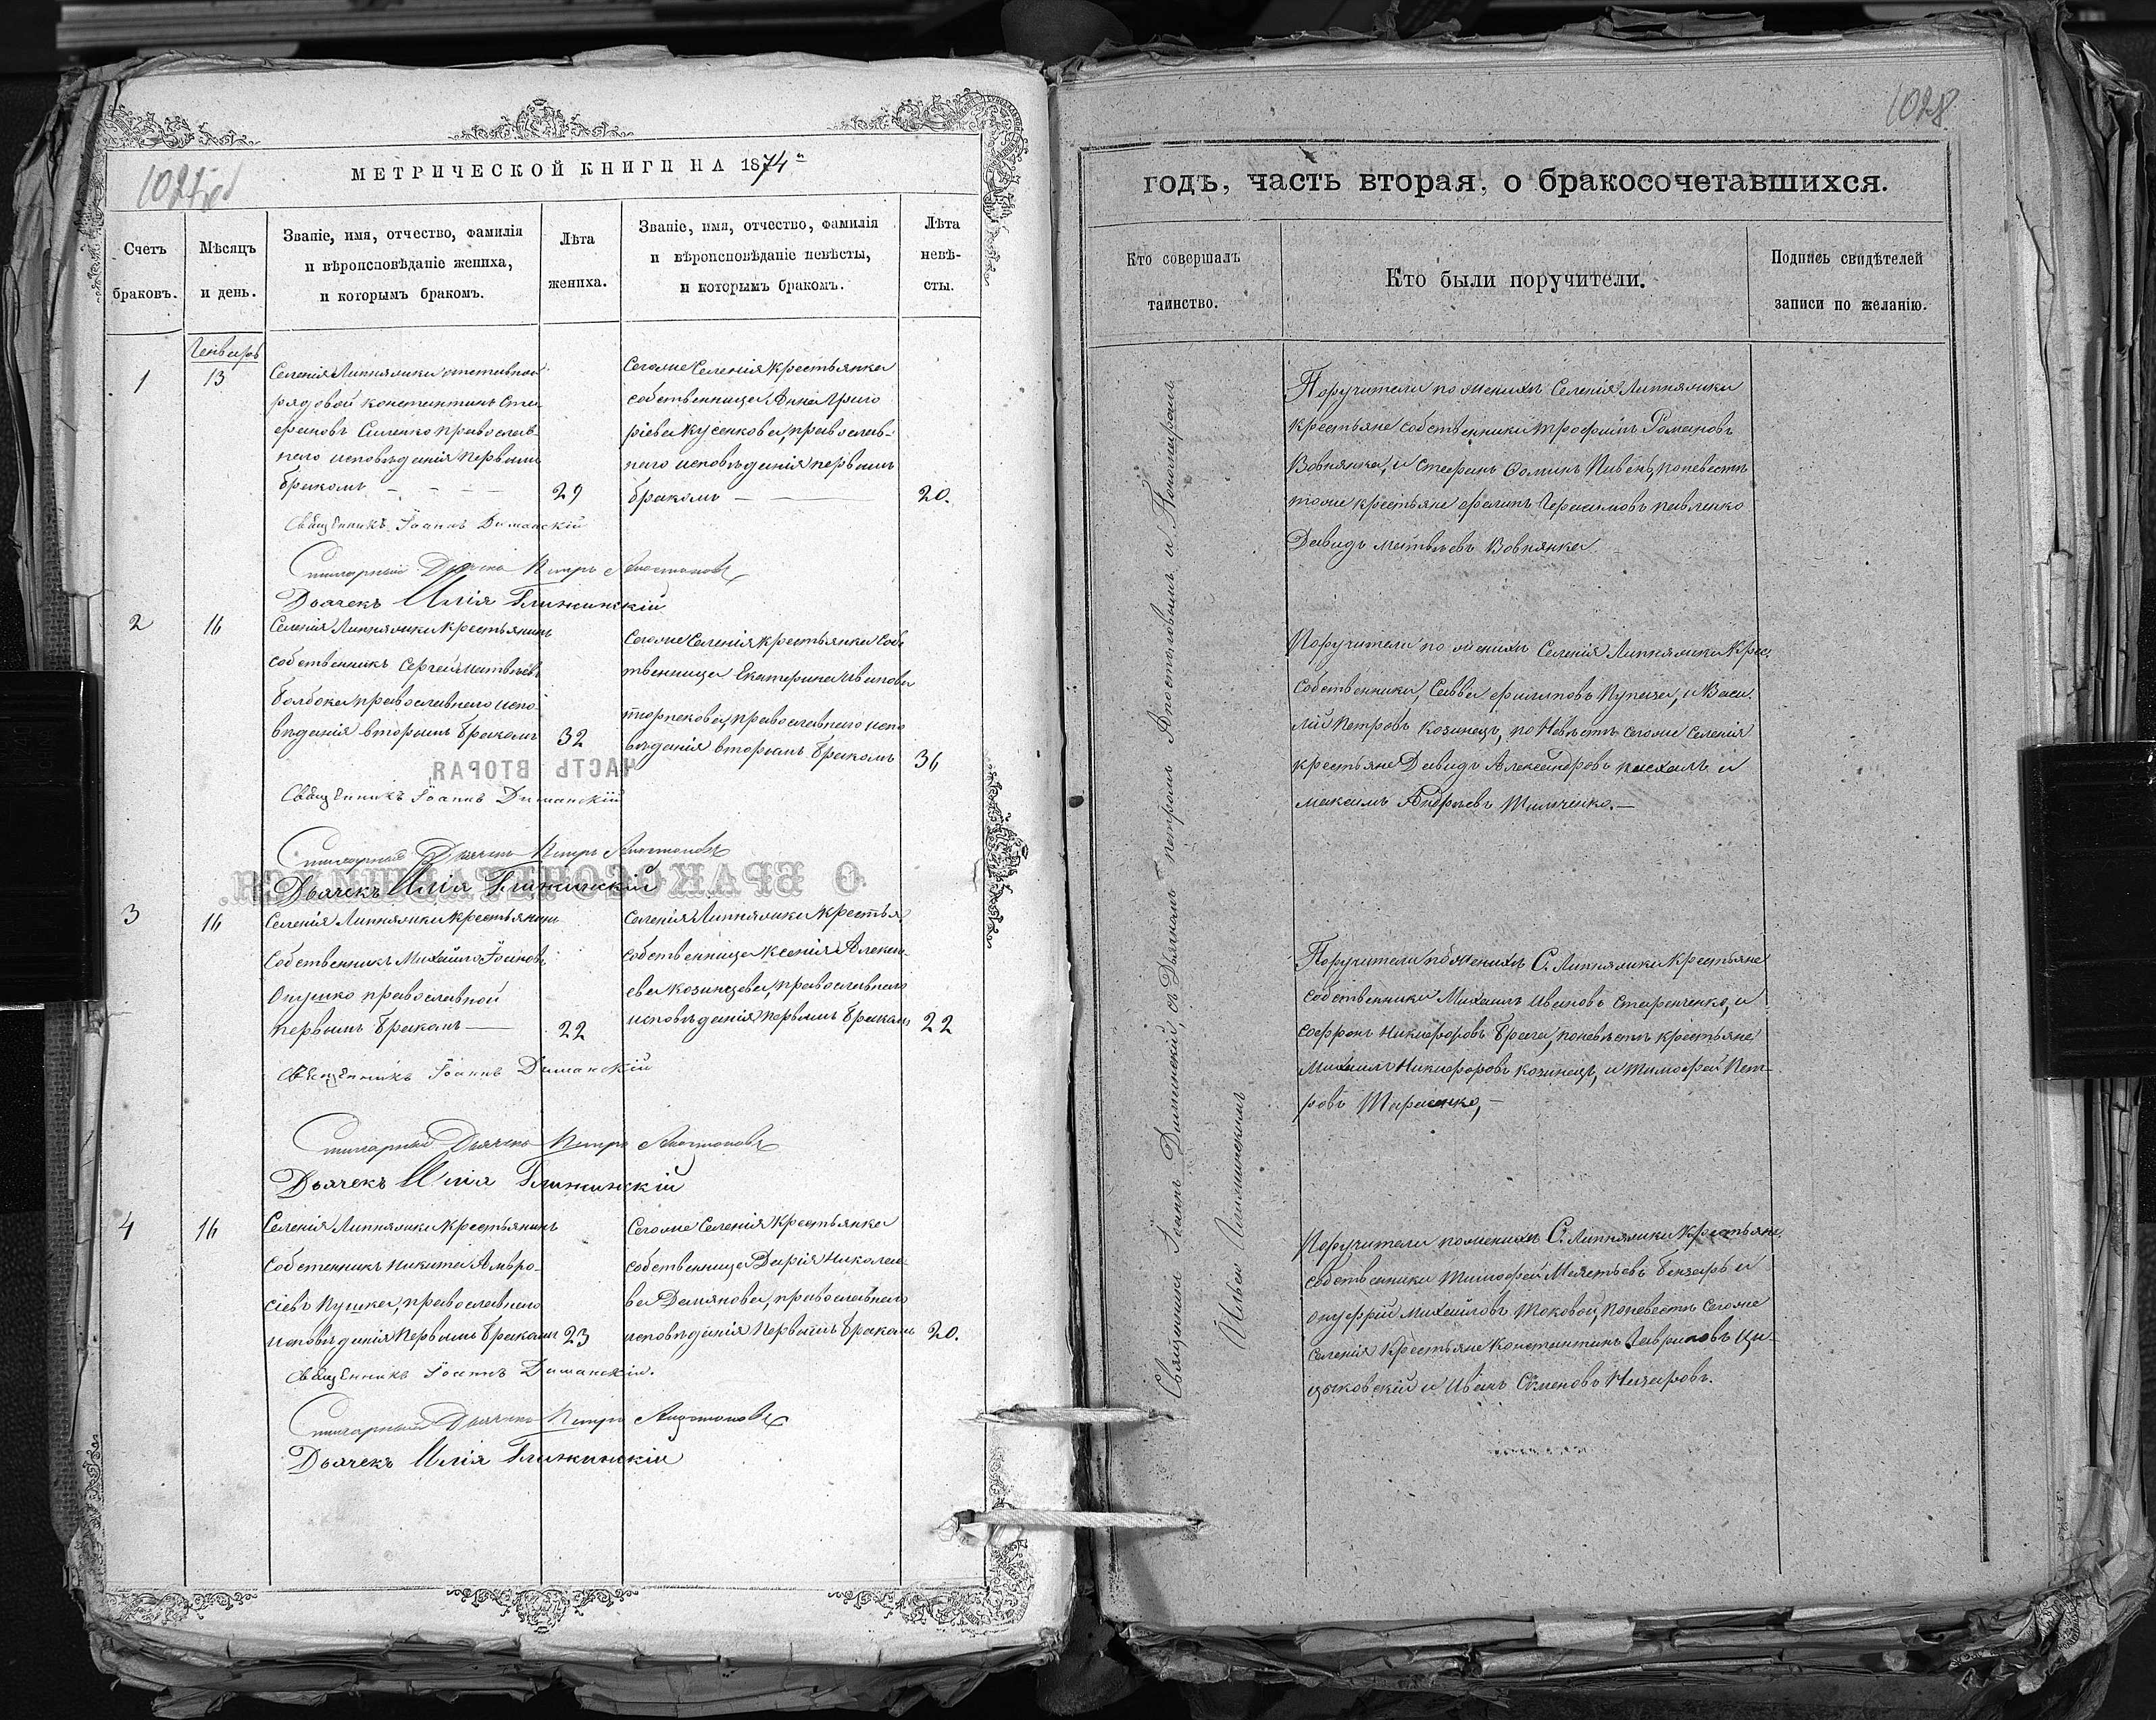 1027об
МЕТРИЧЕСКОЙ КНИГИ НА 1874й
Счетъ браковъ.
Мѣсяцъ и день.
Званіе, имя, отчество, фамилія
и вѣроисповѣданіе жениха,
и которымъ бракомъ.
Лѣта
жениха.
Званіе, имя, отчество, фамилія
и вѣроисповѣданіе невѣсты,
и которымъ бракомъ.
Лѣта
невѣ-
сты.
Генваръ
1
13
Селенія Липнянки отставной
рядовой Константинъ Сте
фановъ Силенко православ-
наго исповѣданія первымъ
бракомъ
29
Сегоже Селенія крестьянка
собственница Анна Григо
ріева Кусенкова, православ-
наго исповѣданія первымъ
бракомъ
20.
Священникъ Іоаннъ Диманскій
Стихарный Дьячекъ Петръ
Дьячекъ Илія Глижинскій
2
16
Селенія Липнянки крестьянинъ
собственникъ Сергей Матвѣевъ
Балбока, православнаго испо-
вѣданія вторымъ бракомъ
32
Сегоже Селенія крестьянка собс
твенница Екатерина Иванова
православнаго испо
вѣданія вторымъ бракомъ
36
Священникъ Іоаннъ Диманскій
Стихарный Дьячекъ Петръ
Дьячекъ Илія Глижинскій
3
16
Селенія Липнянки крестьянинъ
Собственникъ Михаилъ Іоановъ
Опушко православной
первымъ бракомъ
22
Селенія Липнянки крестья.
собственница Ксенія Алексѣ-
ева Козинцева, православнаго
исповѣданія первымъ бракомъ
22
Священникъ Іоаннъ Диманскій
Стихарный Дьячекъ Петръ
Дьячекъ Илія Глижинскій
4
16
Селенія Липнянки крестьянинъ
Собстенникъ Никита Амвро-
сіевъ Пушка, православнаго
исповѣданія первымъ бракомъ
23
Сегоже Селенія крестьянка
собственница Дарія Николае-
ва Демянова, православнаго
исповѣданія первымъ бракомъ
20.
Священникъ Іоаннъ Диманскій.
Стихарный Дьячекъ Петръ
Дьячекъ Илія Глижинскій
ЧАСТЬ ВТОРАЯ,
О БРАКОСОЧЕТАВШИХСЯ.
1028
годъ, часть вторая, о бракосочетавшихся.
Кто совершалъ
таинство.
Кто были поручители.
Подпись свидѣтелей
записи по желанію.
Священникъ Іоаннъ Диманскій, съ Дьячкомъ Петромъ и Пономаремъ
Ильею
Поручители по женихѣ Селенія Липнянки
крестьяне собственники Трофимъ Романовъ
Вовнянка, и Стефанъ Фоминъ Пивень, поневестѣ
тоже крестьяне Герасимовъ Павленко
Давидъ Матвѣевъ Вовнянка
Поручители по женихѣ Селенія Липнянки Крес.
собственники, Савва Филиповъ Пугача, и Васи
лій Петровъ Козинецъ, по Невѣстѣ сегоже селенія
крестьяне Давидъ Александровъ и
Максимъ Андрѣевъ
Поручители по женихѣ С. Липнянки крестьяне
собственники Михаилъ Ивановъ Старченко, и
Софронъ Никифоровъ Брага, поневѣстѣ крестьяне
Михаилъ Никифоровъ Козинецъ, и Тимофей Пет-
ровъ Тарасенко,
Поручители поженихѣ С. Липнянки Крестьяне
собственники Тимофей Бензарь и
Онуфрій Михайловъ Токовой, поневестѣ Сегоже
Селенія Крестьяне Константинъ Гавриловъ Ци-
цяковскій и Иванъ Семеновъ Назаровъ.